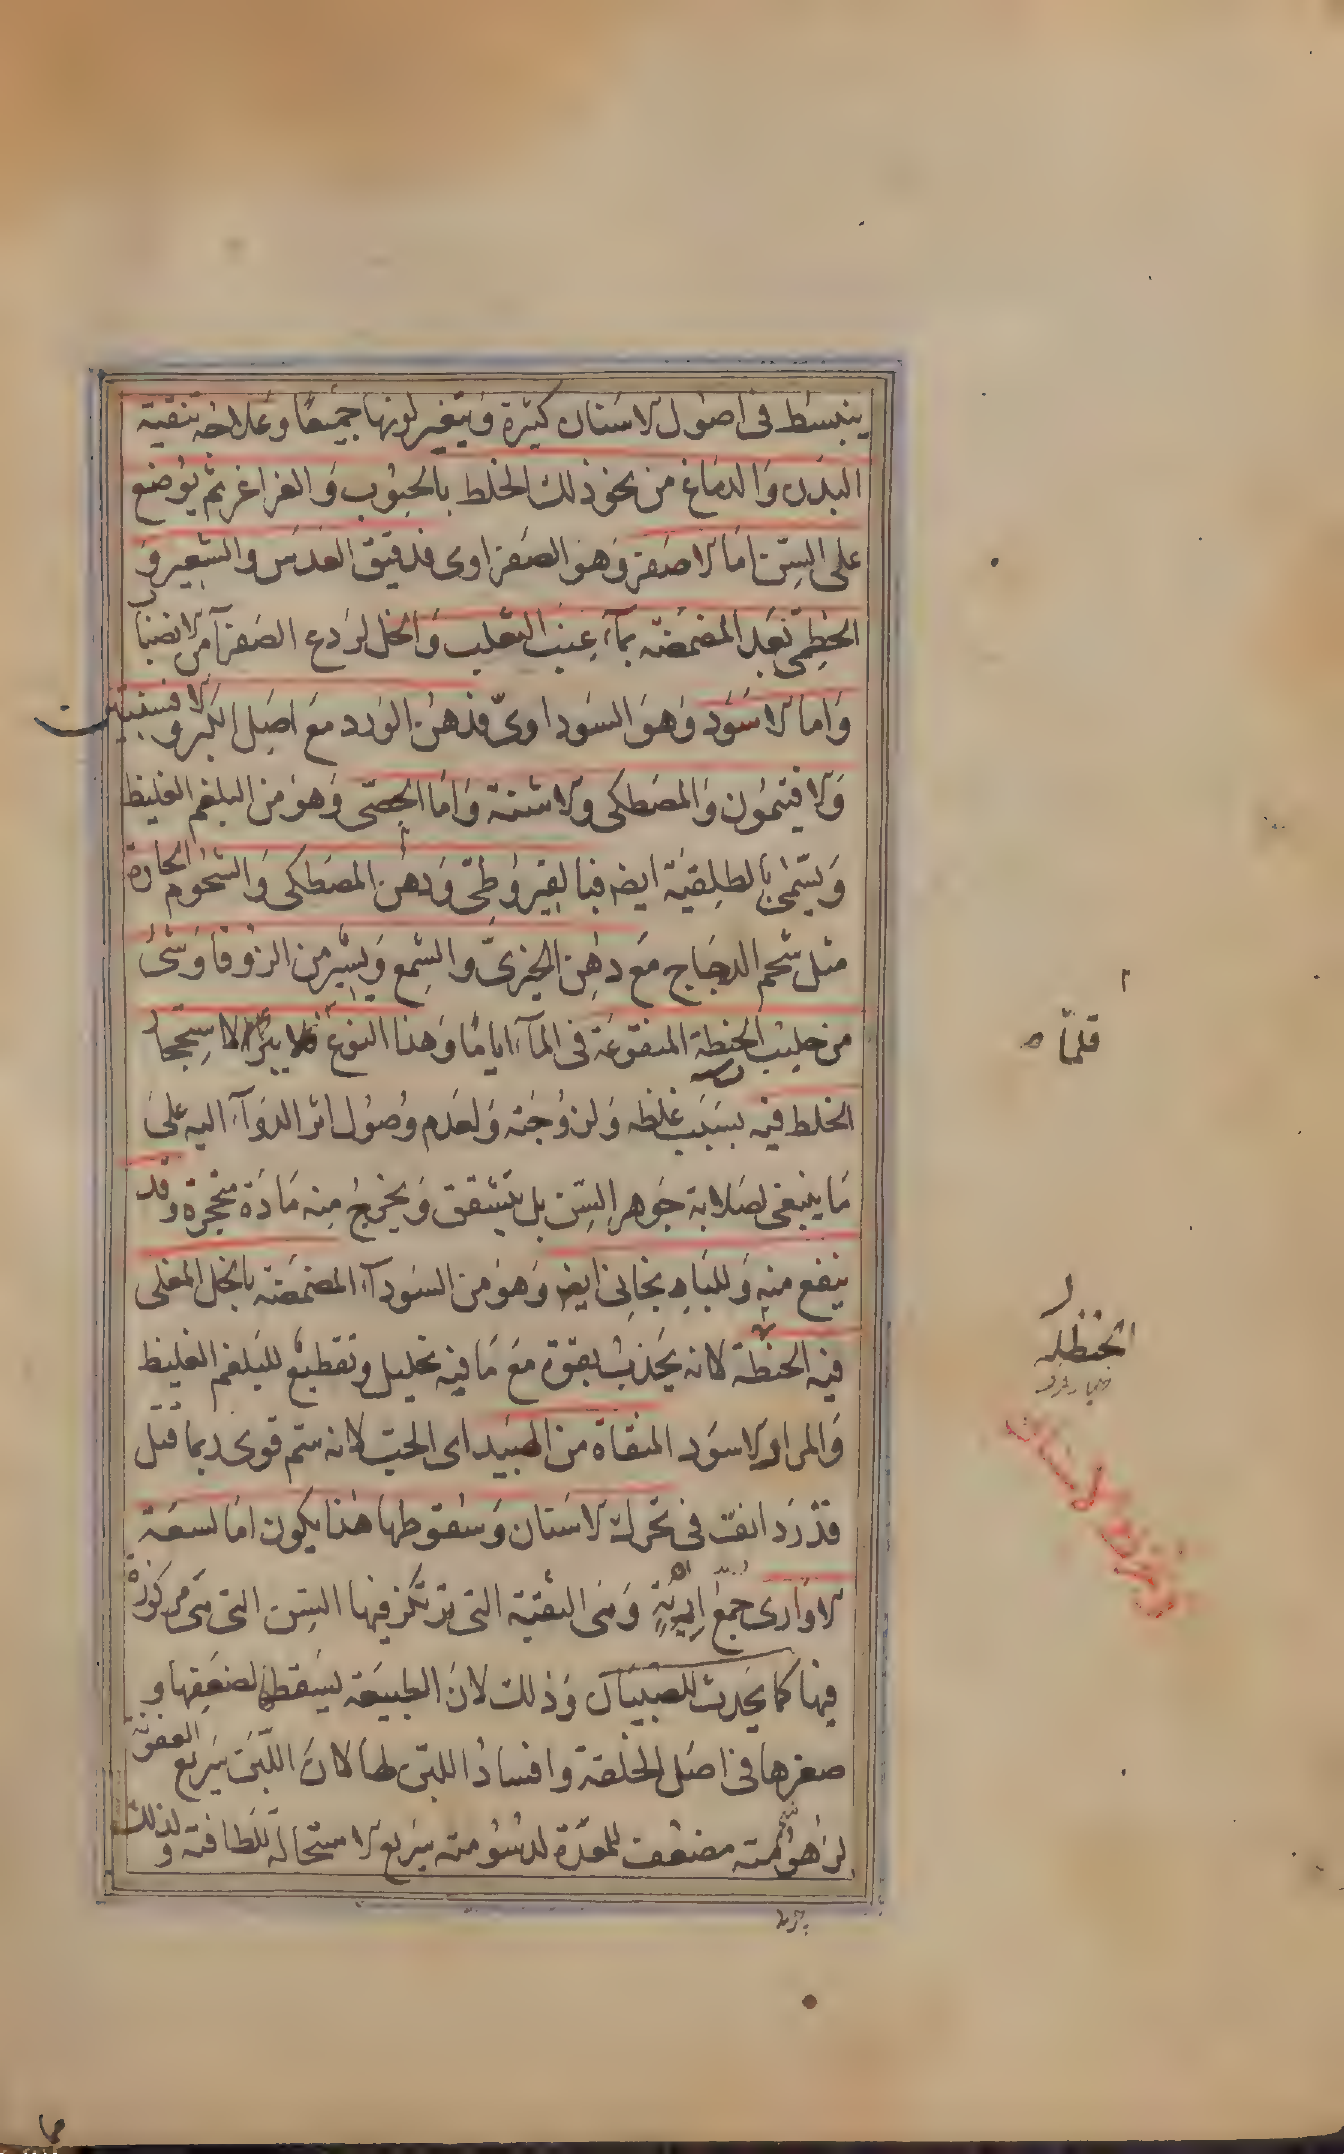 ينبسط فى اصول الاسنان كثيرة و يتغير لونها جميعا و علاجه تنقية
البدن و الدماغ من نحو ذلك الخلط بالحبوب و الغراغر ثم يوضع
على السن اما الاصفر و هو الصفراوى فدقيق العدس و الشعير و
الخطمى بعد المضمضة بماء عنب الثعلب و الخل لردع الصفراء من الانصباب
و اما الاسود و هو السوداوى فدهن الورد مع اصل الكبر و الافسنتين
و الافتيمون و المصطكى و الاشنة و اما الجصى و هو من البلغم الغليظ
و يسمى بالطليقية ايضا فبالقيروطى و دهن المصطكى و الشحوم الحارة
مثل شحم الدجاج مع دهن الخيرى و الشمع و يسير من الزوفا و شئ
من حليب الحنطة المنقوعة فى الماء اياما و هذا النوع يبرأ لاستحجار
الخلط فيه بسبب غلظه و لزوجته و لعدم وصول اثر الدواء اليه على
ما ينبغى لصلابة جوهر السن بل يتشقق و يخرج منه مادة متحجرة و قد
ينفع منه و للباذنجانى ايضا و هو من السوداء المضمضة بالخل المغلى
فيه الحنظلة لانه يجذب بقوة مع ما فيه تحليل و تقطيع للبلغم الغليظ
و المراد الاسود المنقاة من الهبيد اى الحب لانه سم قوى ربما قتل
قد زدانفت فى تحرك الاسنان و سقوطها هذا يكون اما لسعة
الاوارى جمع ارية و هى النقبة التى يرتكز فيها السن التى هى مركوزة
فيها كما يحدث للصبيان و ذلك لان الطبيعة يسقطها لضعفها و
صغرها فى اصل الخلقة و افساد اللبن لها لان اللبن سريع العفونة
لزهومته مضعف للمعدة لدسومته سريع الاستحالة للطافته و لذلك
قلما
الحنظلة